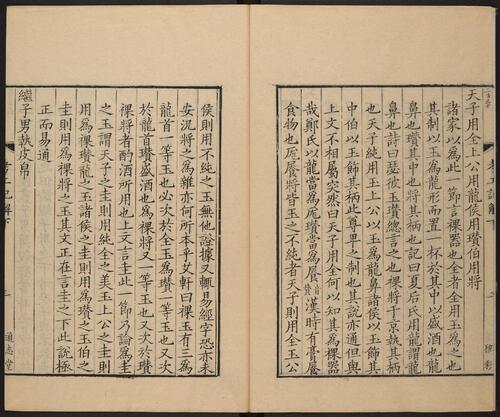 天子用全上公用龍侯用瓚伯用將
諸家以為此一節言祼器也全者全用玉為之也
其制以玉為龍形而置一杯於其中以盛酒也龍
鼻也瓚其中也將其柄也記曰夏后氏用龍謂龍
鼻也詩曰瑟彼玉瓚總言之也祼將于京執其柄
也天子純用玉上公以玉為龍鼻諸侯以玉飾其
中伯以玉飾其柄此尊卑之制也其說亦通但與
上文不相屬突然曰天子用全何以知其為祼器
哉鄭氏以龍當為尨瓚當為餐漢時有膏餐
食物也尨餐將皆玉之不純者天子則用全玉公
侯則用不純之玉無他證據又輒易經字恐亦未
安況將之為雜亦何所本乎艾軒曰祼玉有三為
龍首一等玉也必次於全玉為瓚一等玉也又次
於龍首瓚盛酒也為祼將又一等玉也又次於瓚
祼將者酌酒所用也上文言圭此一節乃論為圭
之玉謂天子之圭則用純全之美玉上公之圭則
用為祼瓚龍之玉諸侯之圭則用為瓚之玉伯之
圭則用為祼將之玉其文正在言圭之下此說極
正而易通
繼子男執皮帛
考工記解下
通志堂